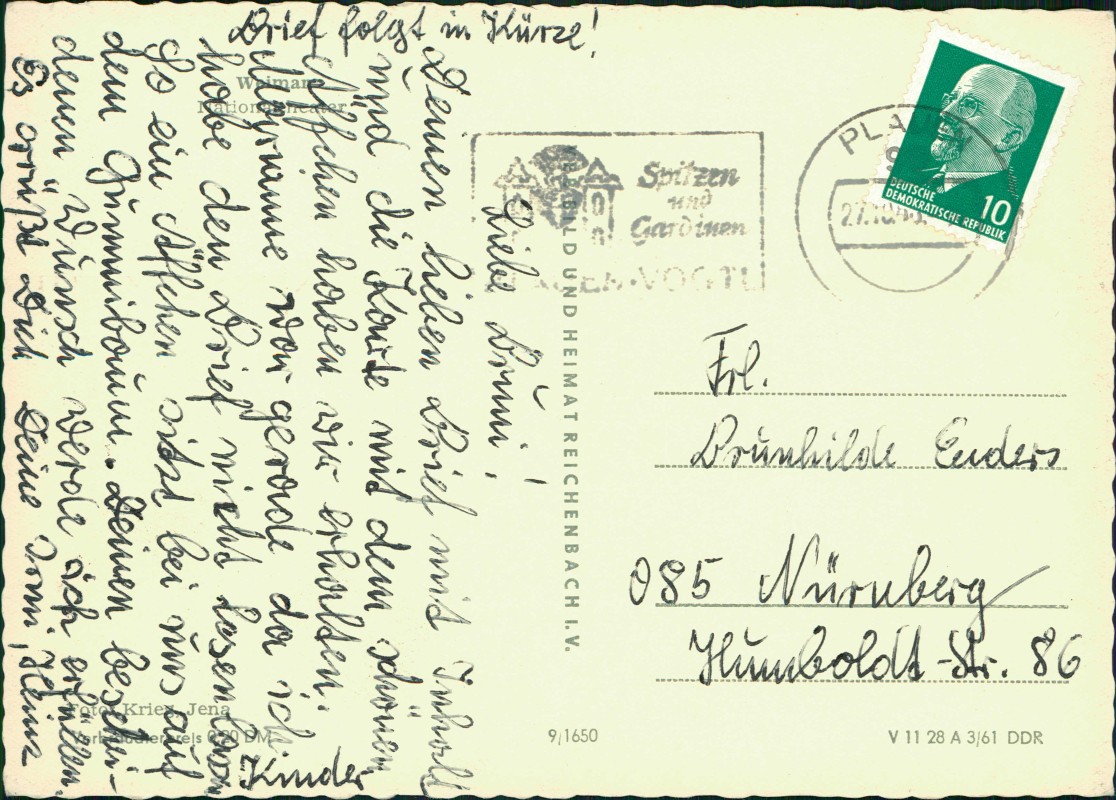 Brief folgt in Kürze!
Liebe Bruni!
Deinen lieben Brief mit Inhalt
und die Karte mit dem schönen
Äffchen haben wir erhalten.
Marianne war gerade da ich
habe den Brief nicht lesen lassen
So ein Äffchen sitzt bei uns auf
dem Gummibaum. Deinen beschei-
denen Wunsch werde ich erfüllen.
Es grüßt Dich Deine Omi, Heinz
Kinder
Weimar
Nationaltheater
Foto: Krier, Jena
Verbraucherpreis 0,20 DM
BILD UND HEIMAT REICHENBACH I. V.
9/1650
V 11 28 A 3/61 DDR
Spitzen
und
Gardinen
PLAUEN-VOGTL
PLAUEN
DEUTSCHE
DEMOKRATISCHE REPUBLIK
10
Frl.
Brunhilde Enders
085 Nürnberg
Humboldt-Str. 86